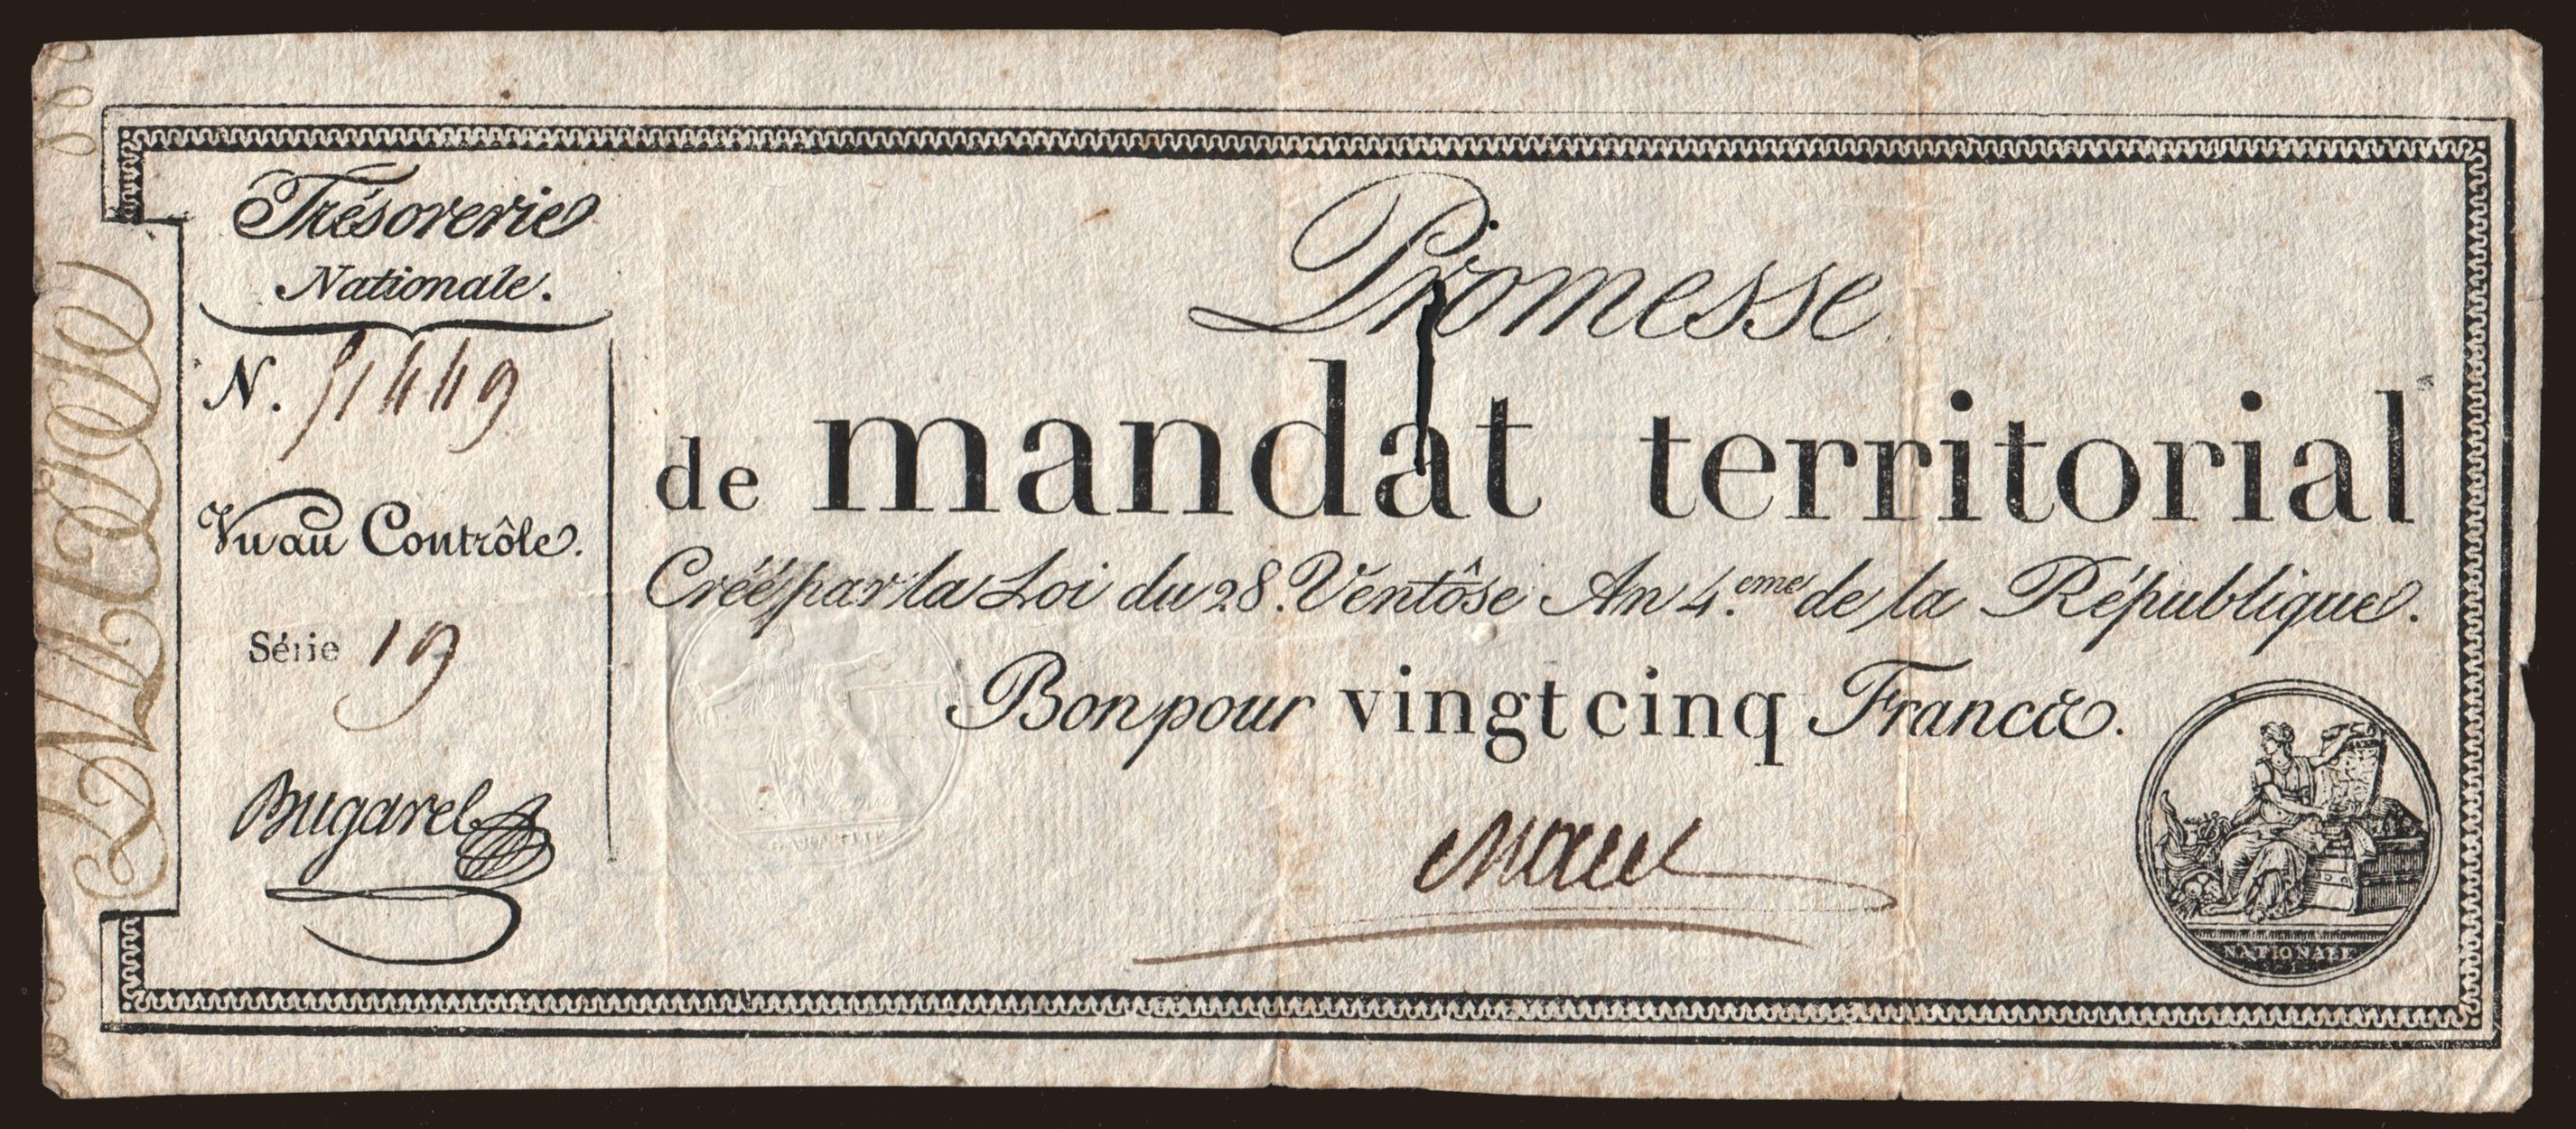 Trésorerie
Nationale.
N. 51449
Vu au Contrôle.
Série 19
Bugarel
Promesse
de mandat territorial
Créé par la Loi du 28. Ventôse An 4.eme de la République.
Bon pour vingt cinq Francs.
NATIONALE